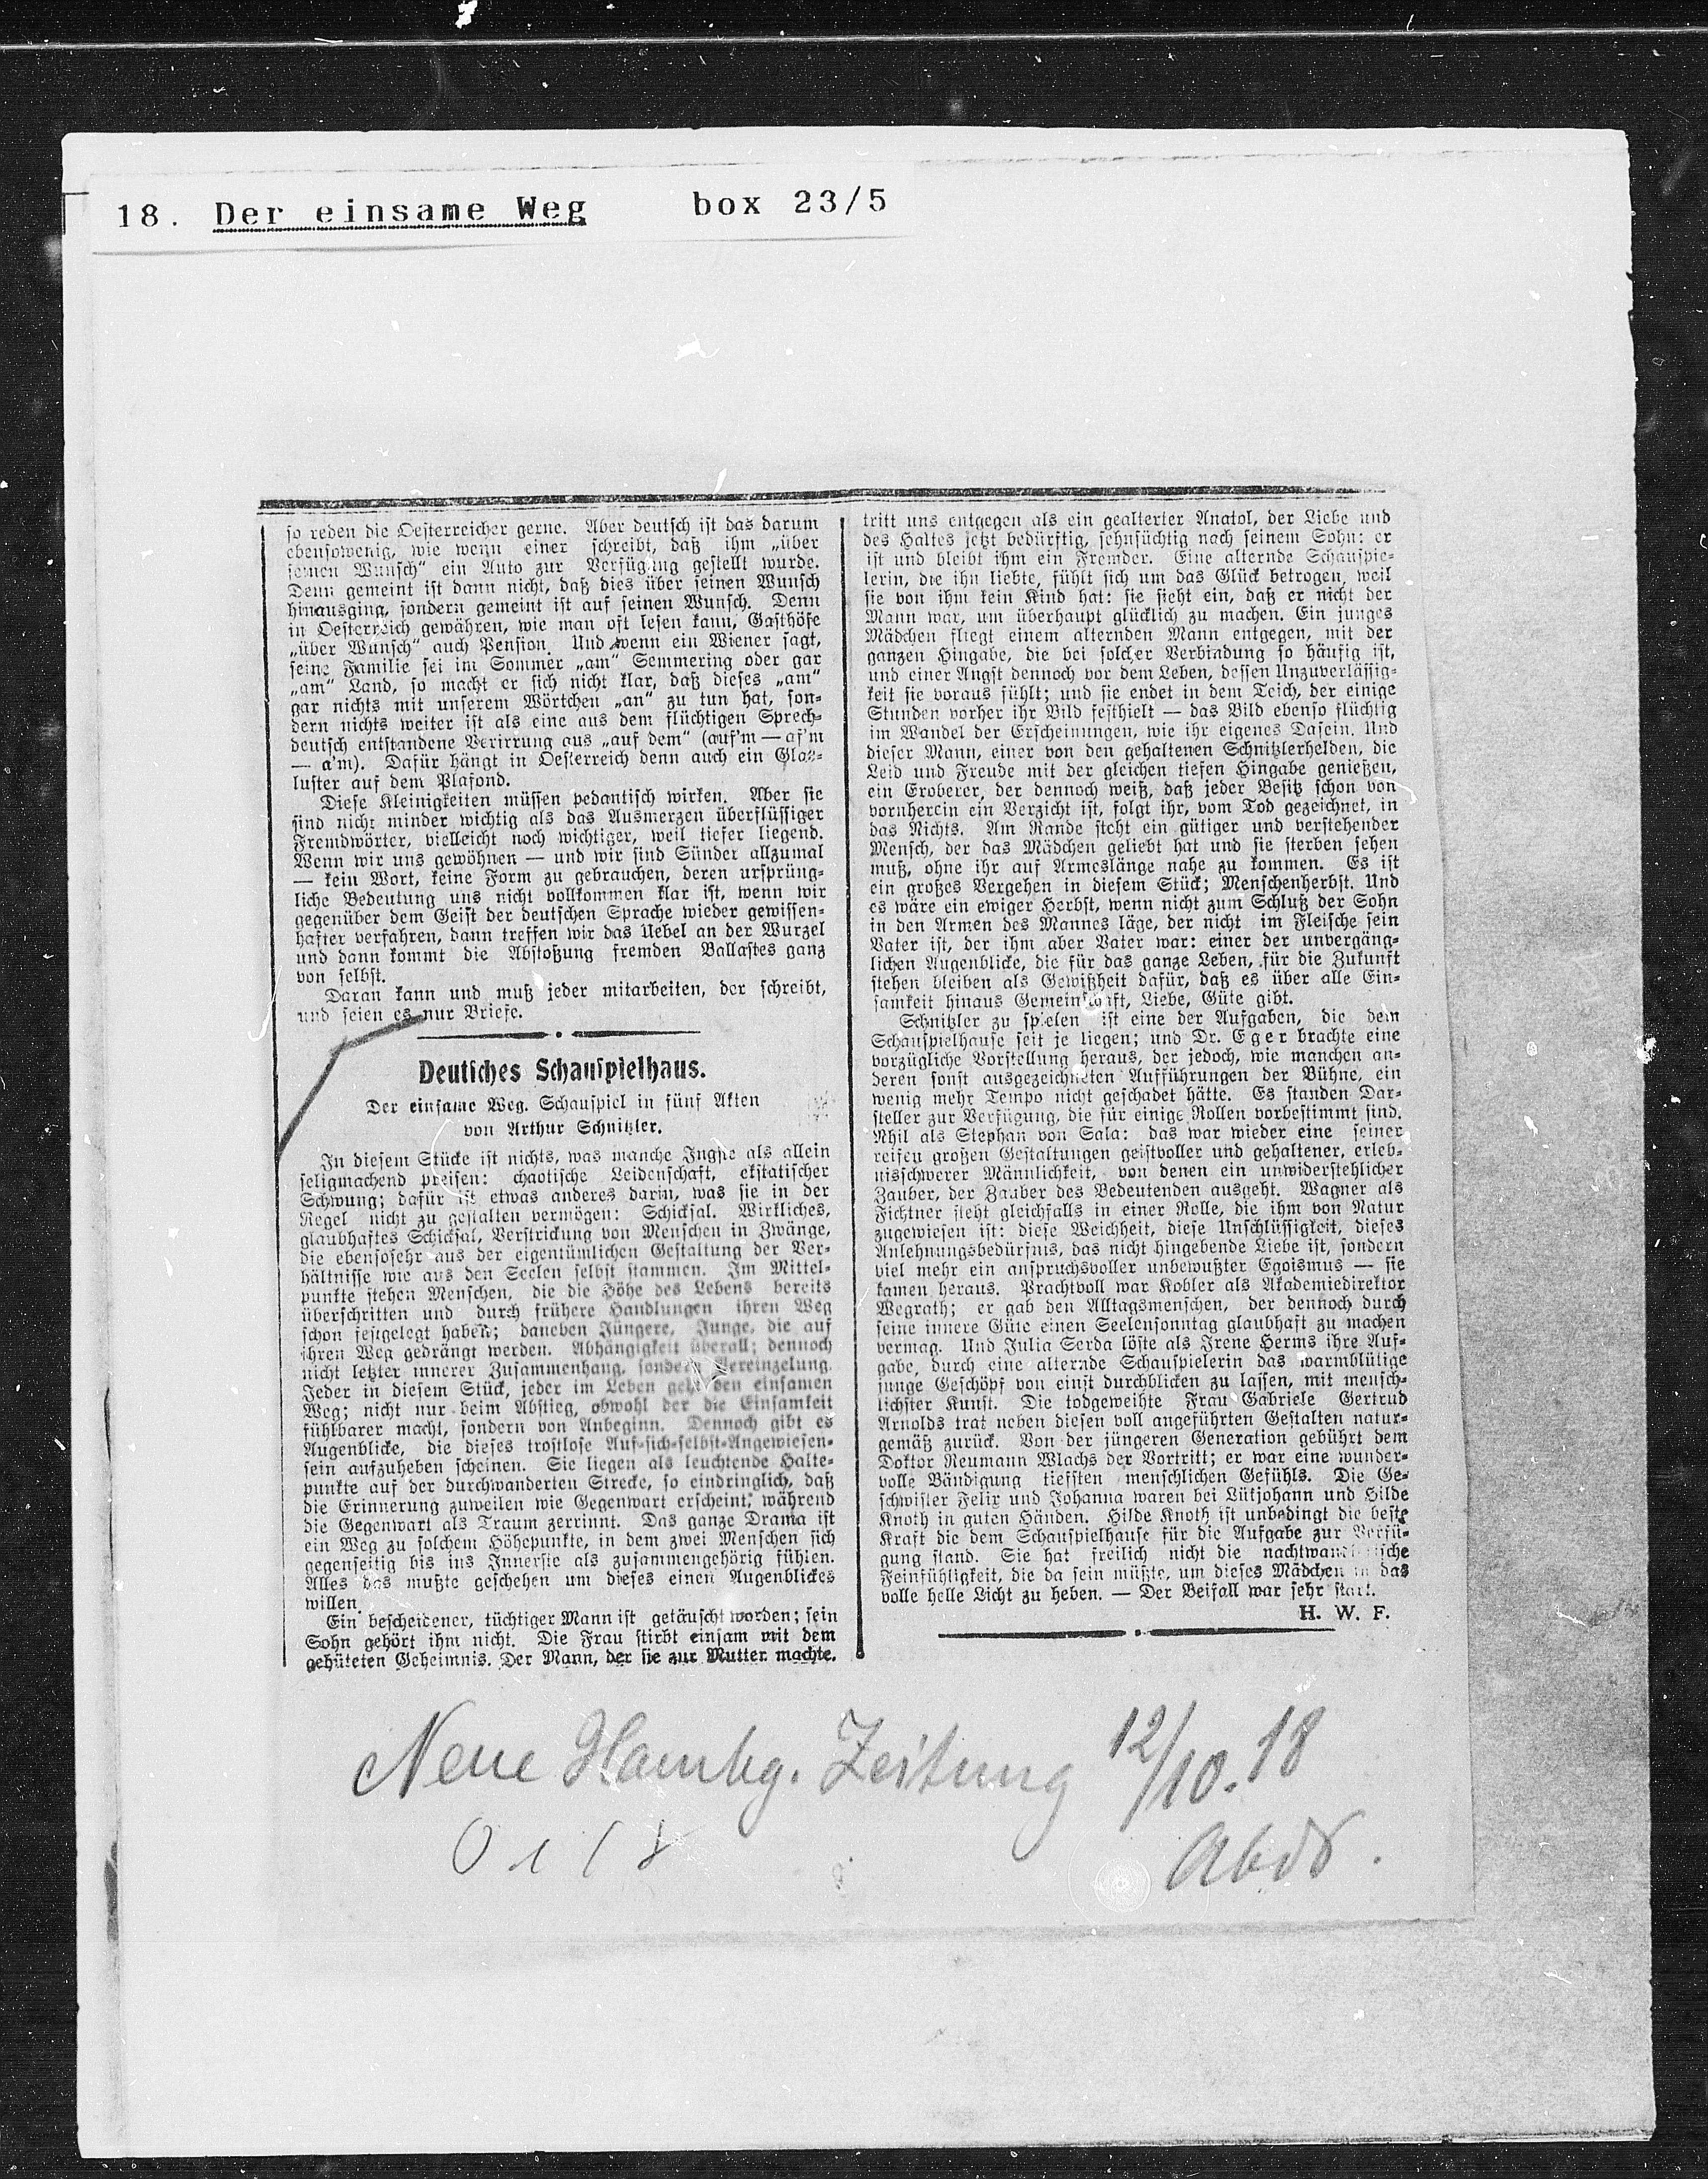 18. Der einsame Weg box 23/5
so reden die Oesterreicher gerne. Aber deutsch ist das darum
ebensowenig, wie wenn einer schreibt, daß ihm „über
seinen Wunsch“ ein Auto zur Verfügung gestellt wurde.
Denn gemeint ist dann nicht, daß dies über seinen Wunsch
hinausging, sondern gemeint ist auf seinen Wunsch. Denn
in Oesterreich gewähren, wie man oft lesen kann, Gasthöfe
„über Wunsch“ auch Pension. Und wenn ein Wiener sagt,
seine Familie sei im Sommer „am“ Semmering oder gar
„am“ Land, so macht er sich nicht klar, daß dieses „am“
gar nichts mit unserem Wörtchen „an“ zu tun hat, son-
dern nichts weiter ist als eine aus dem flüchtigen Sprech-
deutsch entstandene Verirrung aus „auf dem“ (auf'm — af'm
— a'm). Dafür hängt in Oesterreich denn auch ein Glas-
luster auf dem Plafond.
Diese Kleinigkeiten müssen pedantisch wirken. Aber sie
sind nicht minder wichtig als das Ausmerzen überflüssiger
Fremdwörter, vielleicht noch wichtiger, weil tiefer liegend.
Wenn wir uns gewöhnen — und wir sind Sünder allzumal
— kein Wort, keine Form zu gebrauchen, deren ursprüng-
liche Bedeutung uns nicht vollkommen klar ist, wenn wir
gegenüber dem Geist der deutschen Sprache wieder gewissen-
hafter verfahren, dann treffen wir das Uebel an der Wurzel
und dann kommt die Abstoßung fremden Ballastes ganz
von selbst.
Daran kann und muß jeder mitarbeiten, der schreibt,
und seien es nur Briefe.
Deutsches Schauspielhaus.
Der einsame Weg. Schauspiel in fünf Akten
von Arthur Schnitzler.
In diesem Stücke ist nichts, was manche Jngste als allein
seligmachend preisen: chaotische Leidenschaft, ekstatischer
Schwung; dafür ist etwas anderes darin, was sie in der
Regel nicht zu gestalten vermögen: Schicksal. Wirkliches,
glaubhaftes Schicksal, Verstrickung von Menschen in Zwänge,
die ebensosehr aus der eigentümlichen Gestaltung der Ver-
hältnisse wie aus den Seelen selbst stammen. Im Mittel-
punkte stehen Menschen, die die Höhe des Lebens bereits
überschritten und durch frühere Handlungen ihren Weg
schon festgelegt haben; daneben Jüngere, Junge, die auf
ihren Weg gedrängt werden. Abhängigkeit überall; dennoch
nicht letzter innerer Zusammenhang, sondern Vereinzelung.
Jeder in diesem Stück, jeder im Leben geht den einsamen
Weg; nicht nur beim Abstieg, obwohl der die Einsamkeit
fühlbarer macht, sondern von Anbeginn. Dennoch gibt es
Augenblicke, die dieses trostlose Auf-sich-selbst-Angewiesen-
sein aufzuheben scheinen. Sie liegen als leuchtende Halte-
punkte auf der durchwanderten Strecke, so eindringlich, daß
die Erinnerung zuweilen wie Gegenwart erscheint, während
die Gegenwart als Traum zerrinnt. Das ganze Drama ist
ein Weg zu solchem Höhepunkte, in dem zwei Menschen sich
gegenseitig bis ins Innerste als zusammengehörig fühlen.
Alles das mußte geschehen um dieses einen Augenblickes
willen.
Ein bescheidener, tüchtiger Mann ist getäuscht worden; sein
Sohn gehört ihm nicht. Die Frau stirbt einsam mit dem
gehüteten Geheimnis. Der Mann, der sie zur Mutter machte,
tritt uns entgegen als ein gealterter Anatol, der Liebe und
des Haltes jetzt bedürftig, sehnsüchtig nach seinem Sohn: er
ist und bleibt ihm ein Fremder. Eine alternde Schauspie-
lerin, die ihn liebte, fühlt sich um das Glück betrogen, weil
sie von ihm kein Kind hat: sie sieht ein, daß er nicht der
Mann war, um überhaupt glücklich zu machen. Ein junges
Mädchen fliegt einem alternden Mann entgegen, mit der
ganzen Hingabe, die bei solcher Verbindung so häufig ist,
und einer Angst dennoch vor dem Leben, dessen Unzuverlässig-
keit sie voraus fühlt; und sie endet in dem Teich, der einige
Stunden vorher ihr Bild festhielt — das Bild ebenso flüchtig
im Wandel der Erscheinungen, wie ihr eigenes Dasein. Und
dieser Mann, einer von den gehaltenen Schnitzlerhelden, die
Leid und Freude mit der gleichen tiefen Hingabe genießen,
ein Eroberer, der dennoch weiß, daß jeder Besitz schon von
vornherein ein Verzicht ist, folgt ihr, vom Tod gezeichnet, in
das Nichts. Am Rande steht ein gütiger und verstehender
Mensch, der das Mädchen geliebt hat und sie sterben sehen
muß, ohne ihr auf Armeslänge nahe zu kommen. Es ist
ein großes Vergehen in diesem Stück; Menschenherbst. Und
es wäre ein ewiger Herbst, wenn nicht zum Schluß der Sohn
in den Armen des Mannes läge, der nicht im Fleische sein
Vater ist, der ihm aber Vater war: einer der unvergäng-
lichen Augenblicke, die für das ganze Leben, für die Zukunft
stehen bleiben als Gewißheit dafür, daß es über alle Ein-
samkeit hinaus Gemeinschaft, Liebe, Güte gibt.
Schnitzler zu spielen ist eine der Aufgaben, die dem
Schauspielhause seit je liegen; und Dr. Eger brachte eine
vorzügliche Vorstellung heraus, der jedoch, wie manchen an-
deren sonst ausgezeichneten Aufführungen der Bühne, ein
wenig mehr Tempo nicht geschadet hätte. Es standen Dar-
steller zur Verfügung, die für einige Rollen vorbestimmt sind.
Nhil als Stephan von Sala: das war wieder eine seiner
reifen großen Gestaltungen geistvoller und gehaltener, erleb-
nisschwerer Männlichkeit, von denen ein unwiderstehlicher
Zauber, der Zauber des Bedeutenden ausgeht. Wagner als
Fichtner steht gleichfalls in einer Rolle, die ihm von Natur
zugewiesen ist: diese Weichheit, diese Unschlüssigkeit, dieses
Anlehnungsbedürfnis, das nicht hingebende Liebe ist, sondern
viel mehr ein anspruchsvoller unbewußter Egoismus — sie
kamen heraus. Prachtvoll war Kobler als Akademiedirektor
Wegrath; er gab den Alltagsmenschen, der dennoch durch
seine innere Güte einen Seelensonntag glaubhaft zu machen
vermag. Und Julia Serda löste als Irene Herms ihre Auf-
gabe, durch eine alternde Schauspielerin das warmblütige
junge Geschöpf von einst durchblicken zu lassen, mit mensch-
lichster Kunst. Die todgeweihte Frau Gabriele Gertrud
Arnolds trat neben diesen voll angeführten Gestalten natur-
gemäß zurück. Von der jüngeren Generation gebührt dem
Doktor Reumann Wlachs der Vortritt; er war eine wunder-
volle Bändigung tiefsten menschlichen Gefühls. Die Ge-
schwister Felix und Johanna waren bei Lütjohann und Hilde
Knoth in guten Händen. Hilde Knoth ist unbedingt die beste
Kraft die dem Schauspielhause für die Aufgabe zur Verfü-
gung stand. Sie hat freilich nicht die nachtwandlerische
Feinfühligkeit, die da sein müßte, um dieses Mädchen in das
volle helle Licht zu heben. — Der Beifall war sehr stark.
H. W. F.
Neue Hambg. Zeitung 12/10.18